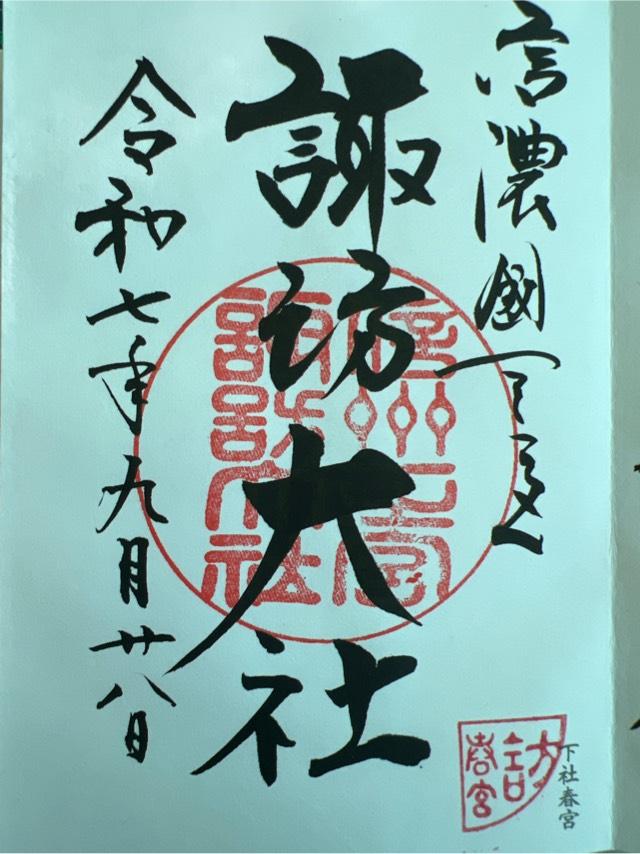 信濃國一之宮
諏訪大社
令和七年九月廿八日
信州一宮
諏訪大社
下社春宮